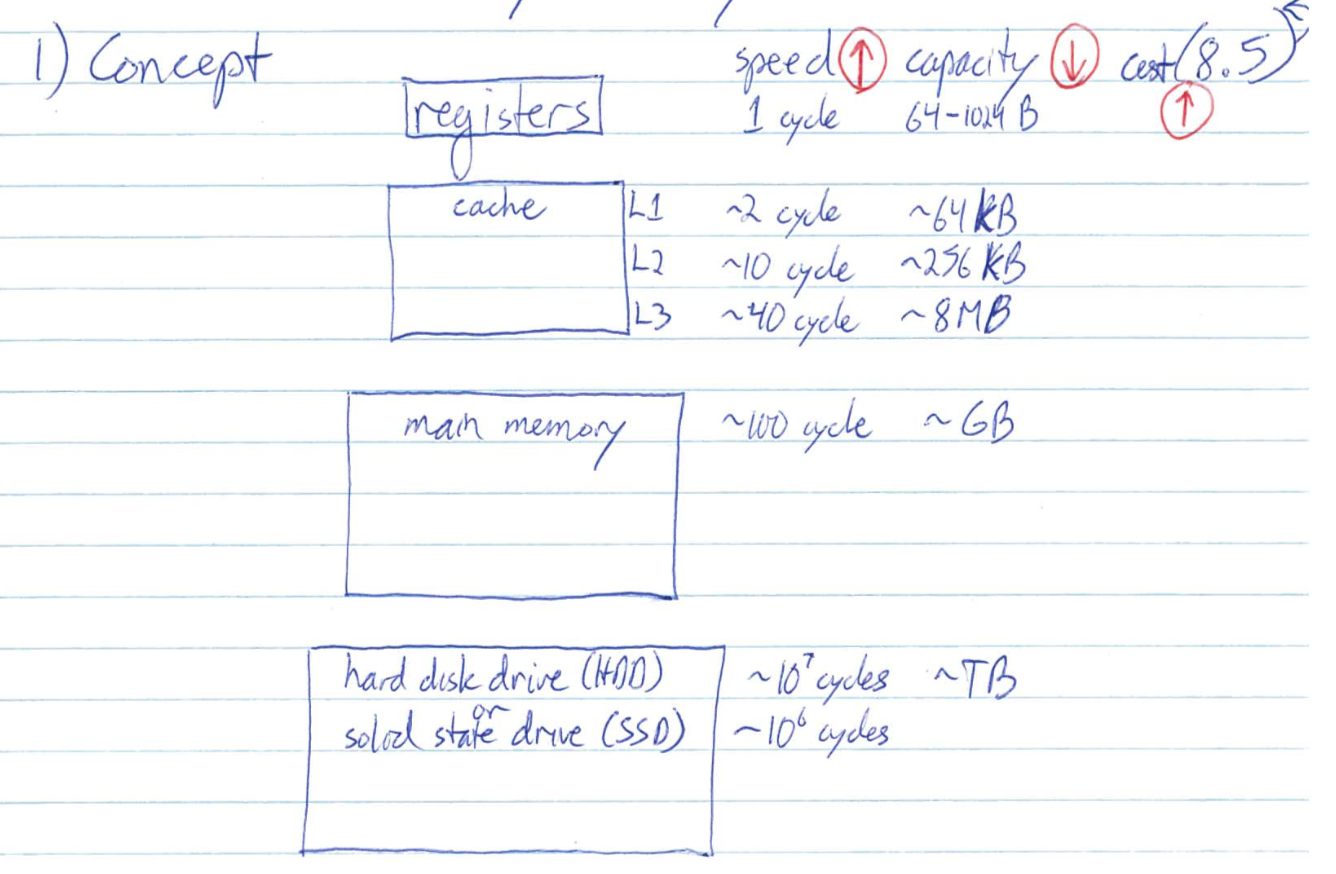 1) Concept speed ↑ capacity ↓ cost (8.5)
registers 1 cycle 64-1024 B ↑
cache L1 ~2 cycle ~64 kB
L2 ~10 cycle ~256 kB
L3 ~40 cycle ~8MB
main memory ~100 cycle ~GB
hard disk drive (HDD) ~10⁷ cycles ~TB
or
solod state drive (SSD) ~10⁶ cycles